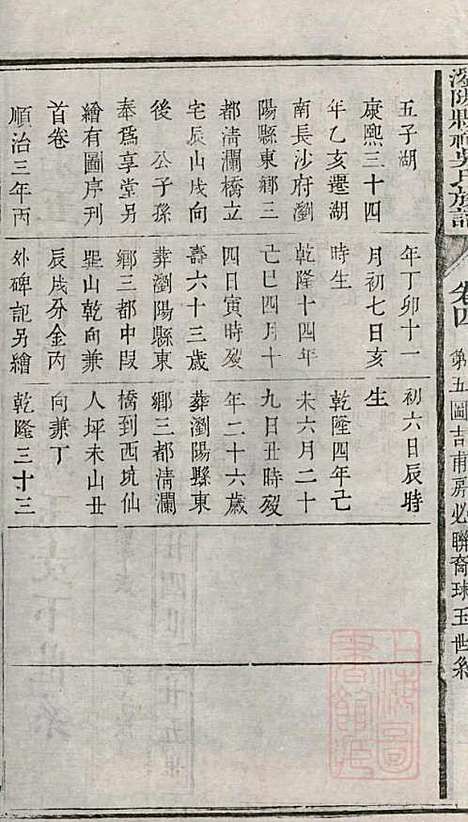 五子湖
康熙三十四
年乙亥遷湖
南長沙府瀏
陽縣東鄉三
都淸瀾橋立
宅辰山戌向
後　公子孫
奉爲享堂另
繪有圖序刋
首卷
順治三年丙
年丁卯十一
月初七日亥
時生
乾隆十四年
己巳四月十
四日寅時歿
壽六十三歲
葬瀏陽縣東
鄉三都中段
㘭山乾向兼
辰戌分金丙
外碑記另繪
初六日辰時
生
乾隆四年己
未六月二十
九日丑時歿
年二十六歲
葬瀏陽縣東
鄉三都淸瀾
橋到西坑仙
人坪未山丑
向兼丁
乾隆三十三
族譜
卷四
第五圖吉甫房必聯裔球玉世系
上海圖書館藏